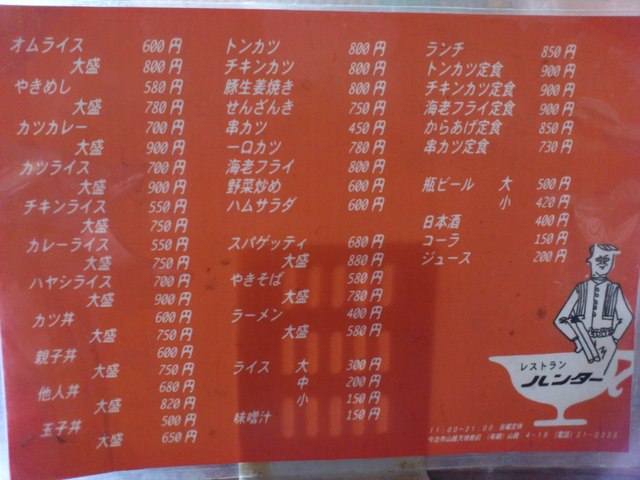 オムライス 600円
大盛 800円
やきめし 580円
大盛 780円
カツカレー 700円
大盛 900円
カツライス 700円
大盛 900円
チキンライス 550円
大盛 750円
カレーライス 550円
大盛 750円
ハヤシライス 700円
大盛 900円
カツ丼 600円
大盛 750円
親子丼 600円
大盛 750円
他人丼 680円
大盛 820円
玉子丼 500円
大盛 650円
トンカツ 800円
チキンカツ 800円
豚生姜焼き 800円
せんざんき 750円
串カツ 450円
一口カツ 780円
海老フライ 800円
野菜炒め 600円
ハムサラダ 600円
スパゲッティ 680円
大盛 880円
やきそば 580円
大盛 780円
ラーメン 400円
大盛 580円
ライス 大 300円
中 200円
小 150円
味噌汁 150円
ランチ 850円
トンカツ定食 900円
チキンカツ定食 900円
海老フライ定食 900円
からあげ定食 850円
串カツ定食 730円
瓶ビール 大 500円
小 420円
日本酒 400円
コーラ 150円
ジュース 200円
レストラン
ハンター
11:00~21:00 日曜定休